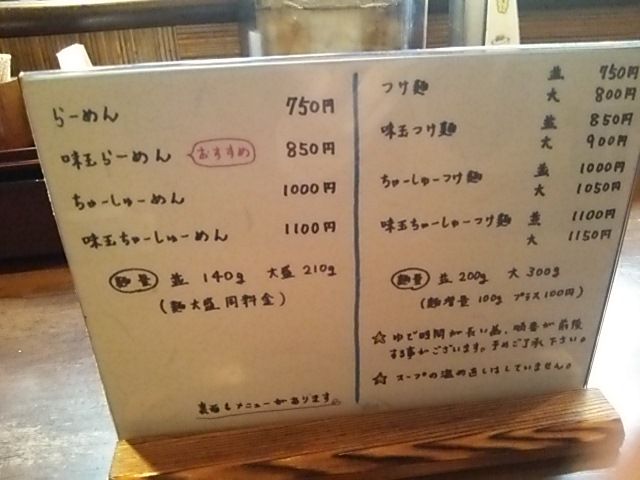 らーめん 750円
味玉らーめん おすすめ 850円
ちゅーしゅーめん 1000円
味玉ちゅーしゅーめん 1100円
麺量 並 140g 大盛 210g
(麺大盛同料金)
裏面もメニューがあります。
つけ麺 並 750円
大 800円
味玉つけ麺 並 850円
大 900円
ちゅーしゅーつけ麺 並 1000円
大 1050円
味玉ちゅーしゅーつけ麺 並 1100円
大 1150円
麺量 並 200g 大 300g
(麺増量 100g プラス100円)
☆ ゆで時間が長い為、順番が前後
する事がございます。予めご了承下さい。
☆ スープの温め直しはしていません。